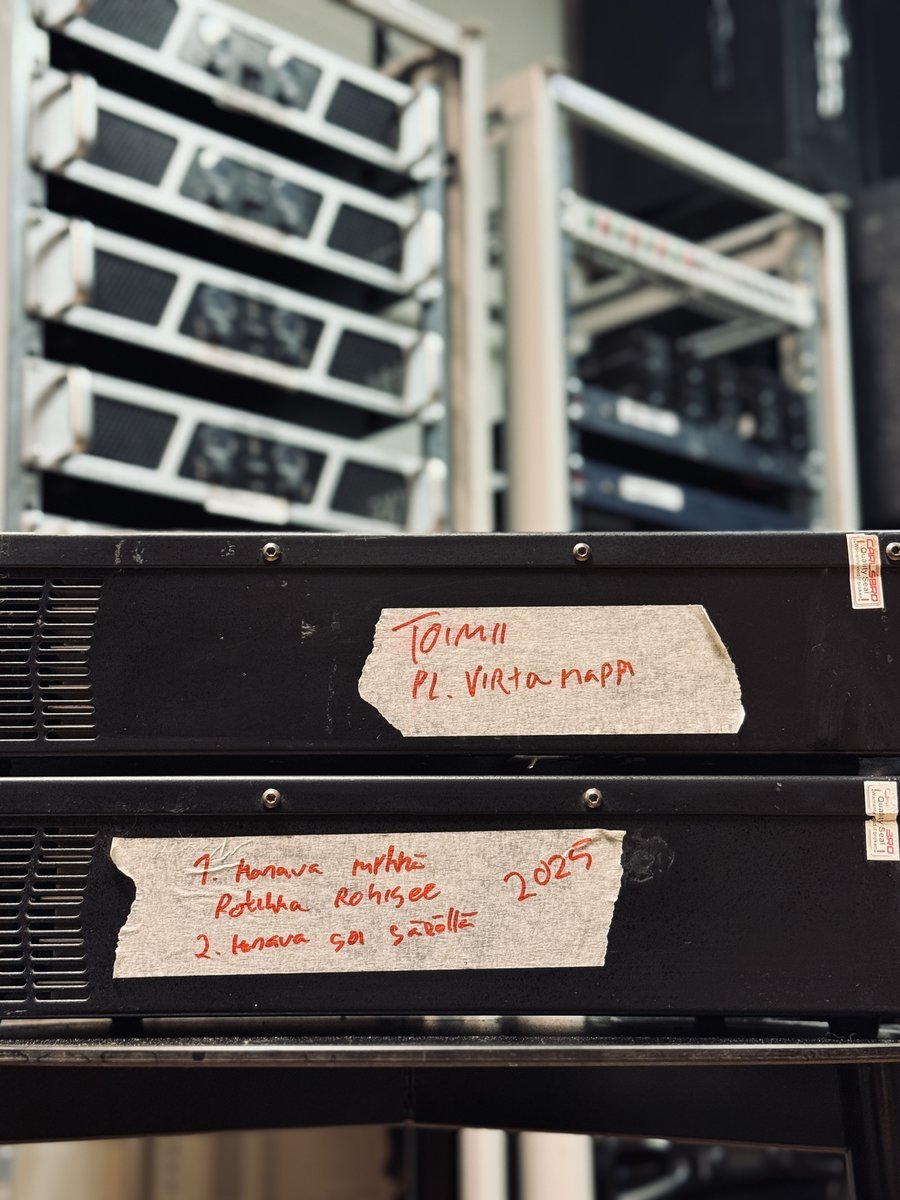 CARLSBRO
Quality Seal
TOIMII
PL. VIRTA NAPPI
1. Kanava mykkä
Potikka Rohisee
2. Kanava soi säröllä
2025
Quality Seal